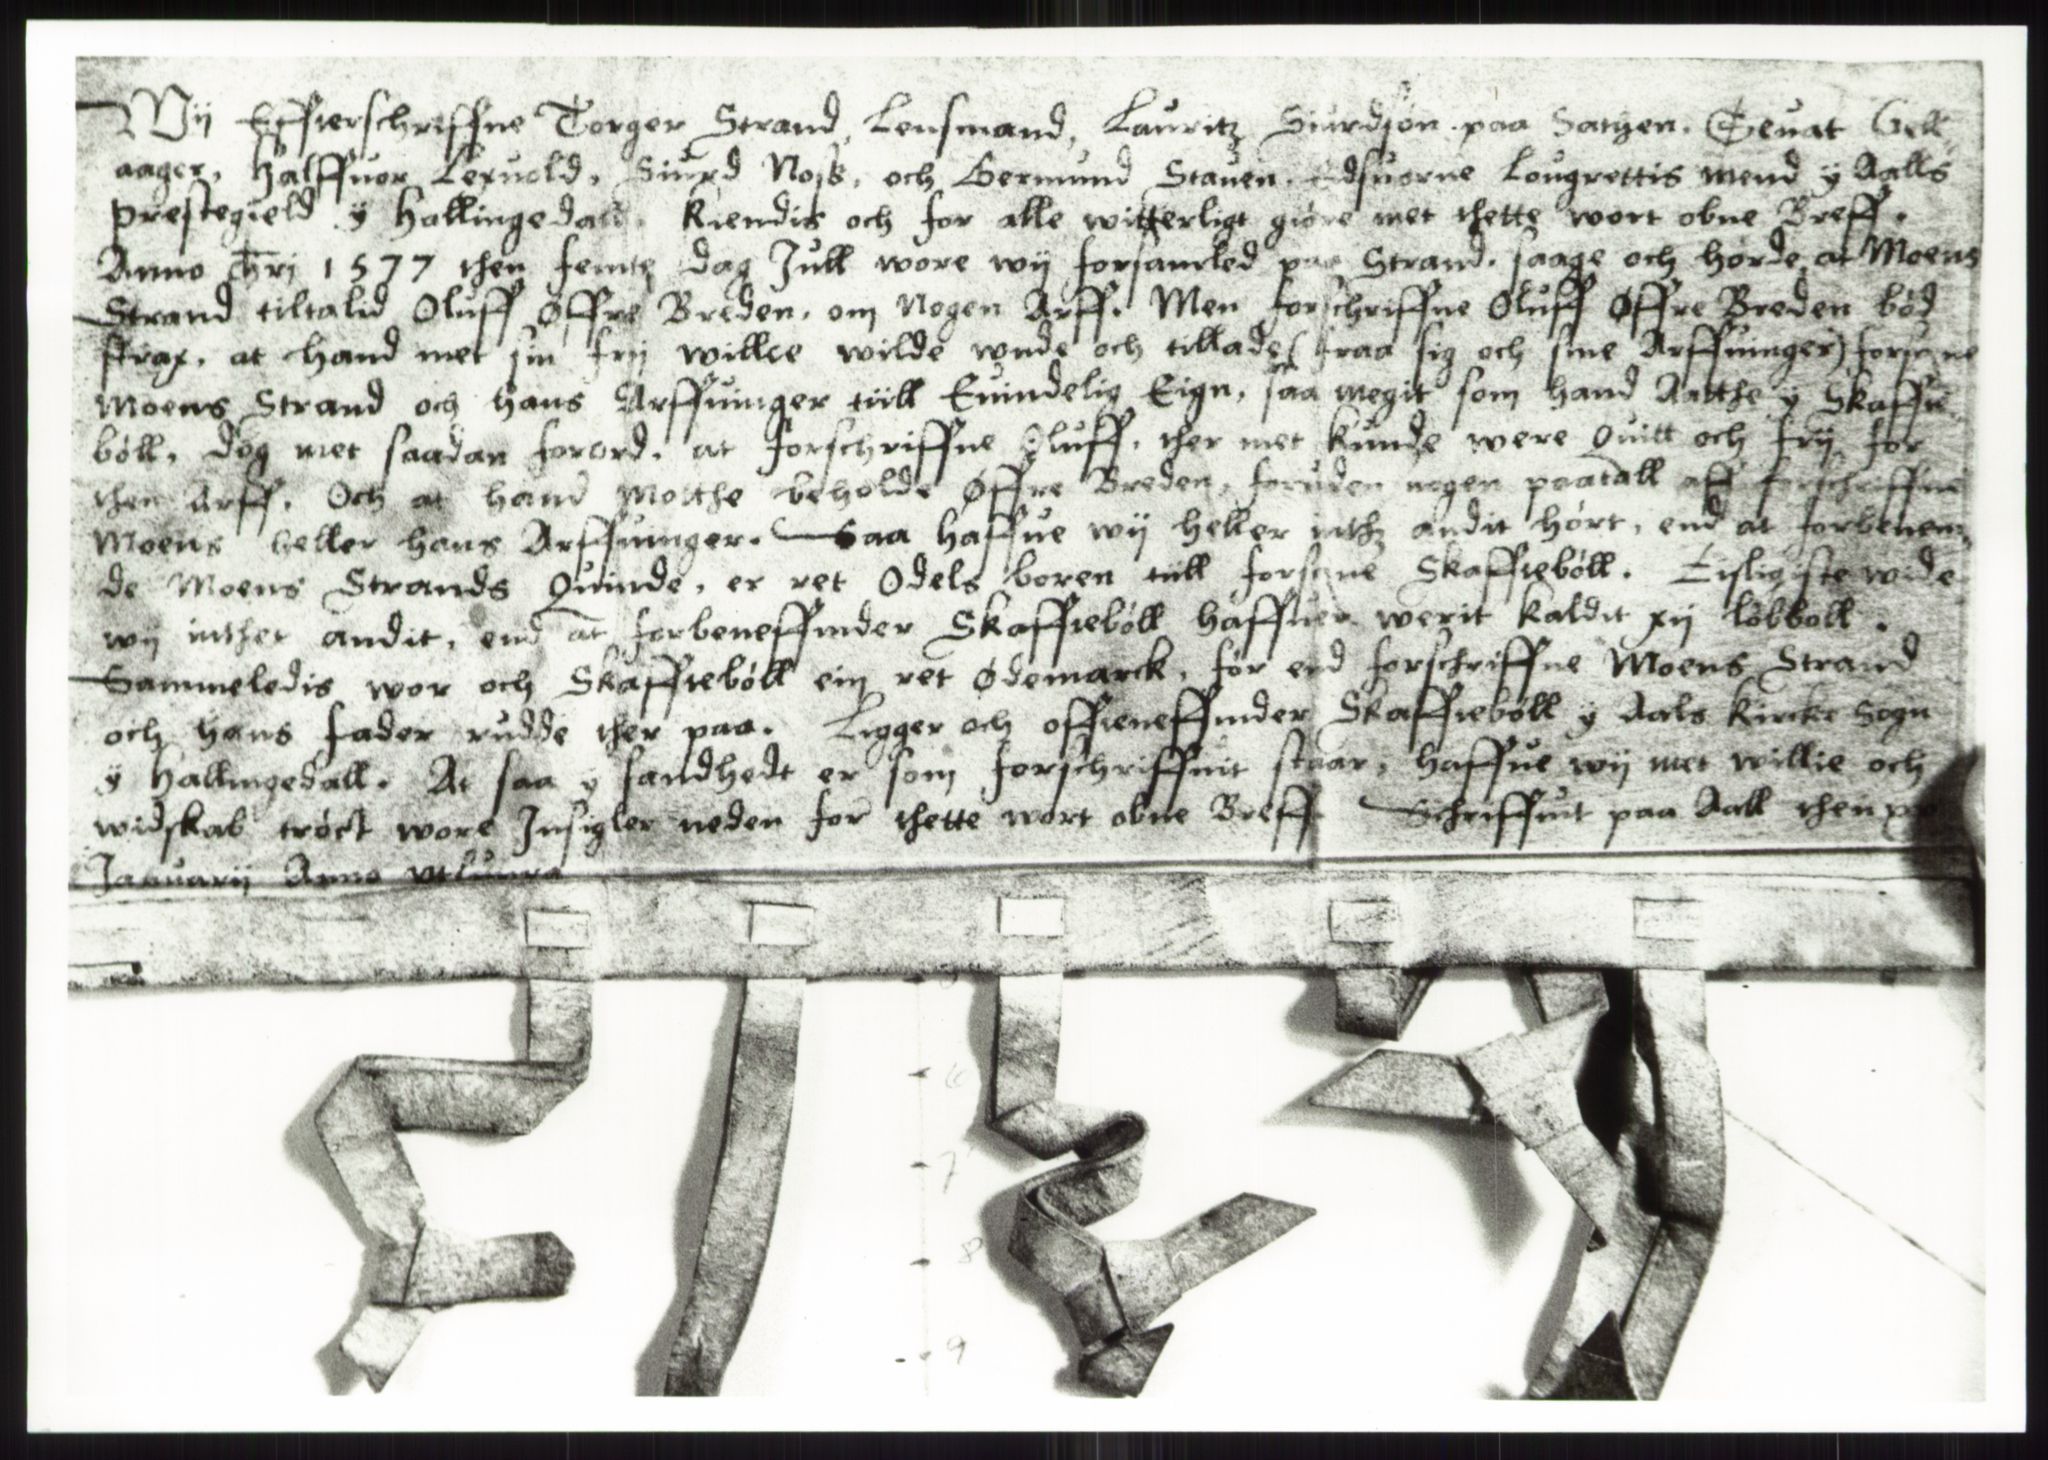 Wij Effterschriffne Torger Strand, Lensmand, Lauritz Siurdsøn paa Satzen, Teuat Gell
aager, Halffuor Lexuold, Siurd Noss, och Germund Stauen, Edsuorne Lougrettis mend y Aalls
prestegield y Hallingedall, Kiendis och for alle witterligt giøre met thette wort obne Breff.
Anno Chri 1577 then femte dag Jull wore wij forsamled paa Strand, saage och hørde at Moens
Strand tiltalid Oluff Øffre Breden, om Nogen Arff. Men forschriffne Oluff Øffre Breden bød
strax, at hand met sin frij willie wilde wnde och tillade (fraa sig och sine Arffuinger) forscrne
Moens Strand och hans Arffuinger tiill Euindelig Eign, saa megit som hand Aatthe y Skaffte
bøll, dog met saadan forord, at forschriffne Oluff, ther met kunde were Quitt och frij for
then Arff. Och at hand Motthe beholde Øffre Breden, foruden nogen paatall aff forschriffne
Moens heller hans Arffuinger. Saa haffue wij heller inthz andit hørt, end at forbenem
de Moens Strands Quinde, er ret Odels boren tiill forscrne Skafftebøll. Eisligiste wide
wij inthet andit, end at forbeneffinder Skafftebøll haffuer werit kaldit xij løbboll.
Sammeledis wor och Skafftebøll ein ret Ødemarck, før end forschriffne Moens Strand
och hans fader rudde ther paa. Ligger och offteneffinder Skafftebøll y Aals kircke Sogn
y Hallingedall. At saa y sandhedt er som forschriffuit staar, haffue wij met willie och
widskab trøct wore Insigler neden for thette wort obne Breff. Schriffuit paa Aall then
Januarij Anno vt supra
6
7
8
9